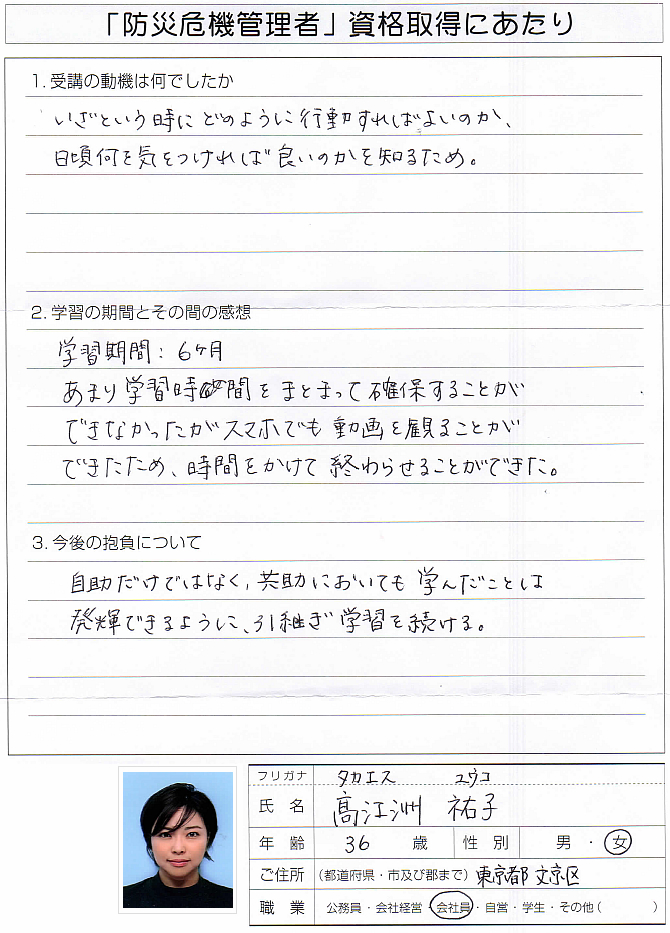 「防災危機管理者」資格取得にあたり
1. 受講の動機は何でしたか
いざという時にどのように行動すればよいのか、
日頃何を気をつければ良いのかを知るため。
2. 学習の期間とその間の感想
学習期間：6ヶ月
あまり学習時間をまとまって確保することが
できなかったがスマホでも動画を観ることが
できたため、時間をかけて終わらせることができた。
3. 今後の抱負について
自助だけではなく、共助においても学んだことは
発揮できるように、引継ぎ学習を続ける。
フリガナ タカエス ユウコ
氏 名 髙江洲 祐子
年 齢 36 歳 性 別 男 ・ 女
ご住所 (都道府県・市及び郡まで) 東京都文京区
職 業 公務員・会社経営・会社員・自営・学生・その他( )